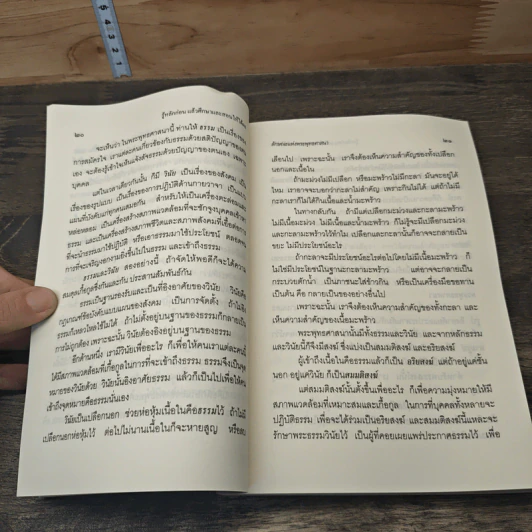 รู้หลักก่อน แล้วศึกษาและสอนให้ได้ผล
๒๐
จะเห็นว่า ในพระพุทธศาสนานี้ ท่านให้ ธรรม เป็นเรื่องของ
การสมัครใจ เราแต่ละคนเกี่ยวข้องกับธรรมด้วยสติปัญญาของตน
เอง จะต้องรู้เข้าใจเห็นแจ้งชัดธรรมด้วยปัญญาของตนเอง เฉพาะ
บุคคล
แต่ในเวลาเดียวกันนั้น ก็มี วินัย เป็นเรื่องของสังคม เป็น
เรื่องของรูปแบบ เป็นเรื่องของการปฏิบัติด้านกายวาจา เป็นแบบ
แผนที่บังคับแก่ทุกคนเสมอกัน สำหรับให้เป็นเครื่องคอย
หล่อหลอม เป็นเครื่องสร้างสภาพแวดล้อมที่จะชักจูงบุคคลเข้าหา
ธรรม และเป็นเครื่องสร้างสภาพชีวิตและสภาพสังคมที่เอื้อต่อการ
ที่จะนำธรรมมาใช้ปฏิบัติ หรือเอาธรรมมาใช้ประโยชน์ ตลอดจน
การที่จะเจริญงอกงามยิ่งขึ้นไปในธรรม และเข้าถึงธรรม
ธรรมและวินัย สองอย่างนี้ ถ้าจัดให้พอดีก็จะได้ความ
สมดุลเกื้อกูลซึ่งกันและกัน ประสานสัมพันธ์กัน
ธรรมเป็นฐานรองรับและเป็นที่อิงอาศัยของวินัย วินัยคือ
กฎเกณฑ์ข้อบังคับแบบแผนของสังคม เป็นการจัดตั้ง ถ้าไม่อิง
ธรรมก็เหลวไหลใช้ไม่ได้ ถ้าไม่ตั้งอยู่บนฐานของธรรมก็กลายเป็น
การไม่ถูกต้อง เพราะฉะนั้น วินัยต้องอิงอยู่บนฐานของธรรม
อีกด้านหนึ่ง เรามีวินัยเพื่ออะไร ก็เพื่อให้คนเราแต่ละคนนี้
ได้มีสภาพแวดล้อมที่เกื้อกูลในการที่จะเข้าถึงธรรม ธรรมจึงเป็นจุด
หมายของวินัยด้วย วินัยนั้นอิงอาศัยธรรม แล้วก็เป็นไปเพื่อให้คน
เข้าถึงจุดหมายคือธรรมนั้นเอง
วินัยเป็นเปลือกนอก ช่วยห่อหุ้มเนื้อในคือธรรมไว้ ถ้าไม่มี
เปลือกนอกห่อหุ้มไว้ ต่อไปไม่นานเนื้อในก็จะหายสูญ หรือลบ
ลักษณะแห่งพระพุทธศาสนา
๒๑
เลือนไป เพราะฉะนั้น เราจึงต้องเห็นความสำคัญของทั้งเปลือก
นอกและเนื้อใน
ถ้ามะม่วงไม่มีเปลือก หรือมะพร้าวไม่มีกะลา มันจะอยู่ได้
ไหม เราอาจจะบอกว่ากะลาไม่สำคัญ เพราะกินไม่ได้ แต่ถ้าไม่มี
กะลาเราก็ไม่ได้กินเนื้อและน้ำมะพร้าว
ในทางกลับกัน ถ้ามีแต่เปลือกมะม่วงและกะลามะพร้าว
ไม่มีเนื้อมะม่วง ไม่มีเนื้อและน้ำมะพร้าว ก็ไม่รู้จะมีเปลือกมะม่วง
และกะลามะพร้าวไว้ทำไม เปลือกและกะลานั้นก็อาจจะกลายเป็น
ขยะ ไม่มีประโยชน์อะไร
ถ้ากะลาจะมีประโยชน์อะไรต่อไปโดยไม่มีเนื้อมะพร้าว ก็
ไม่ใช่มีประโยชน์ในฐานะกะลามะพร้าว แต่อาจจะกลายเป็น
กระบวยตักน้ำ เป็นภาชนะใส่ข้าวกิน หรือเป็นเครื่องมือขอทาน
เป็นต้น คือ กลายเป็นของอย่างอื่นไป
เพราะฉะนั้น เราจึงต้องเห็นความสำคัญของทั้งกะลา และ
เห็นความสำคัญของเนื้อมะพร้าว
พระพุทธศาสนานั้นมีทั้งธรรมและวินัย และจากหลักธรรม
และวินัยนี้ก็จึงมีสงฆ์ ซึ่งแบ่งเป็นสมมติสงฆ์ และอริยสงฆ์
ผู้เข้าถึงเนื้อในคือธรรมแล้วก็เป็น อริยสงฆ์ แต่ถ้าอยู่แค่ชั้น
นอก อยู่แค่วินัย ก็เป็นสมมติสงฆ์
แต่สมมติสงฆ์นั้นตั้งขึ้นเพื่ออะไร ก็เพื่อความมุ่งหมายให้มี
สภาพแวดล้อมที่เหมาะสมและเกื้อกูล ในการที่บุคคลทั้งหลายจะ
ปฏิบัติธรรม เพื่อจะได้ร่วมเป็นอริยสงฆ์ และสมมติสงฆ์นี้แหละจะ
รักษาพระธรรมวินัยไว้ เป็นผู้ที่คอยเผยแพร่ประกาศธรรมไว้ เพื่อ
5
4
3
2